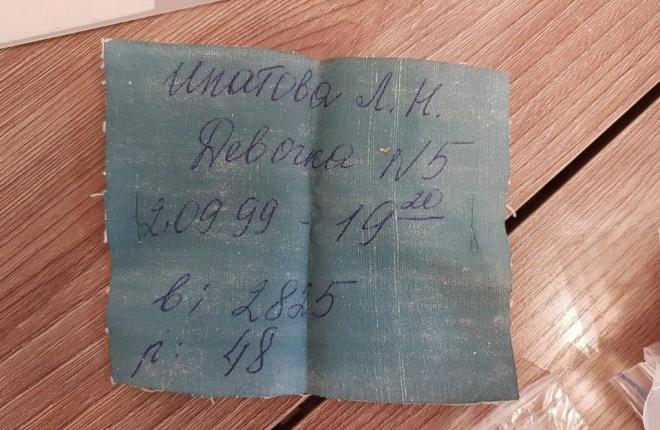 Ипатова Л. Н.
Девочка N5
2.09 99 - 19 20
в: 2825
р: 48